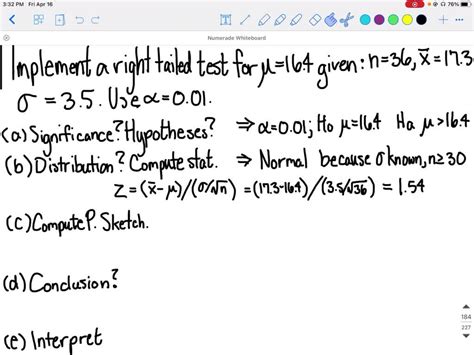 3:32 PM Fri Apr 16
76%
Numerade Whiteboard
Implement a right tailed test for μ=16.4 given: n=36, x̄=17.3
σ = 3.5. Use α=0.01.
(a) Significance? Hypotheses? ⇒ α=0.01; Ho μ=16.4 Ha μ>16.4
(b) Distribution? Compute stat. ⇒ Normal because σ known, n≥30
Z = (x̄-μ)/(σ/√n) = (17.3-16.4)/(3.5/√36) = 1.54
(c) Compute P. Sketch.
(d) Conclusion?
184
227
(e) Interpret